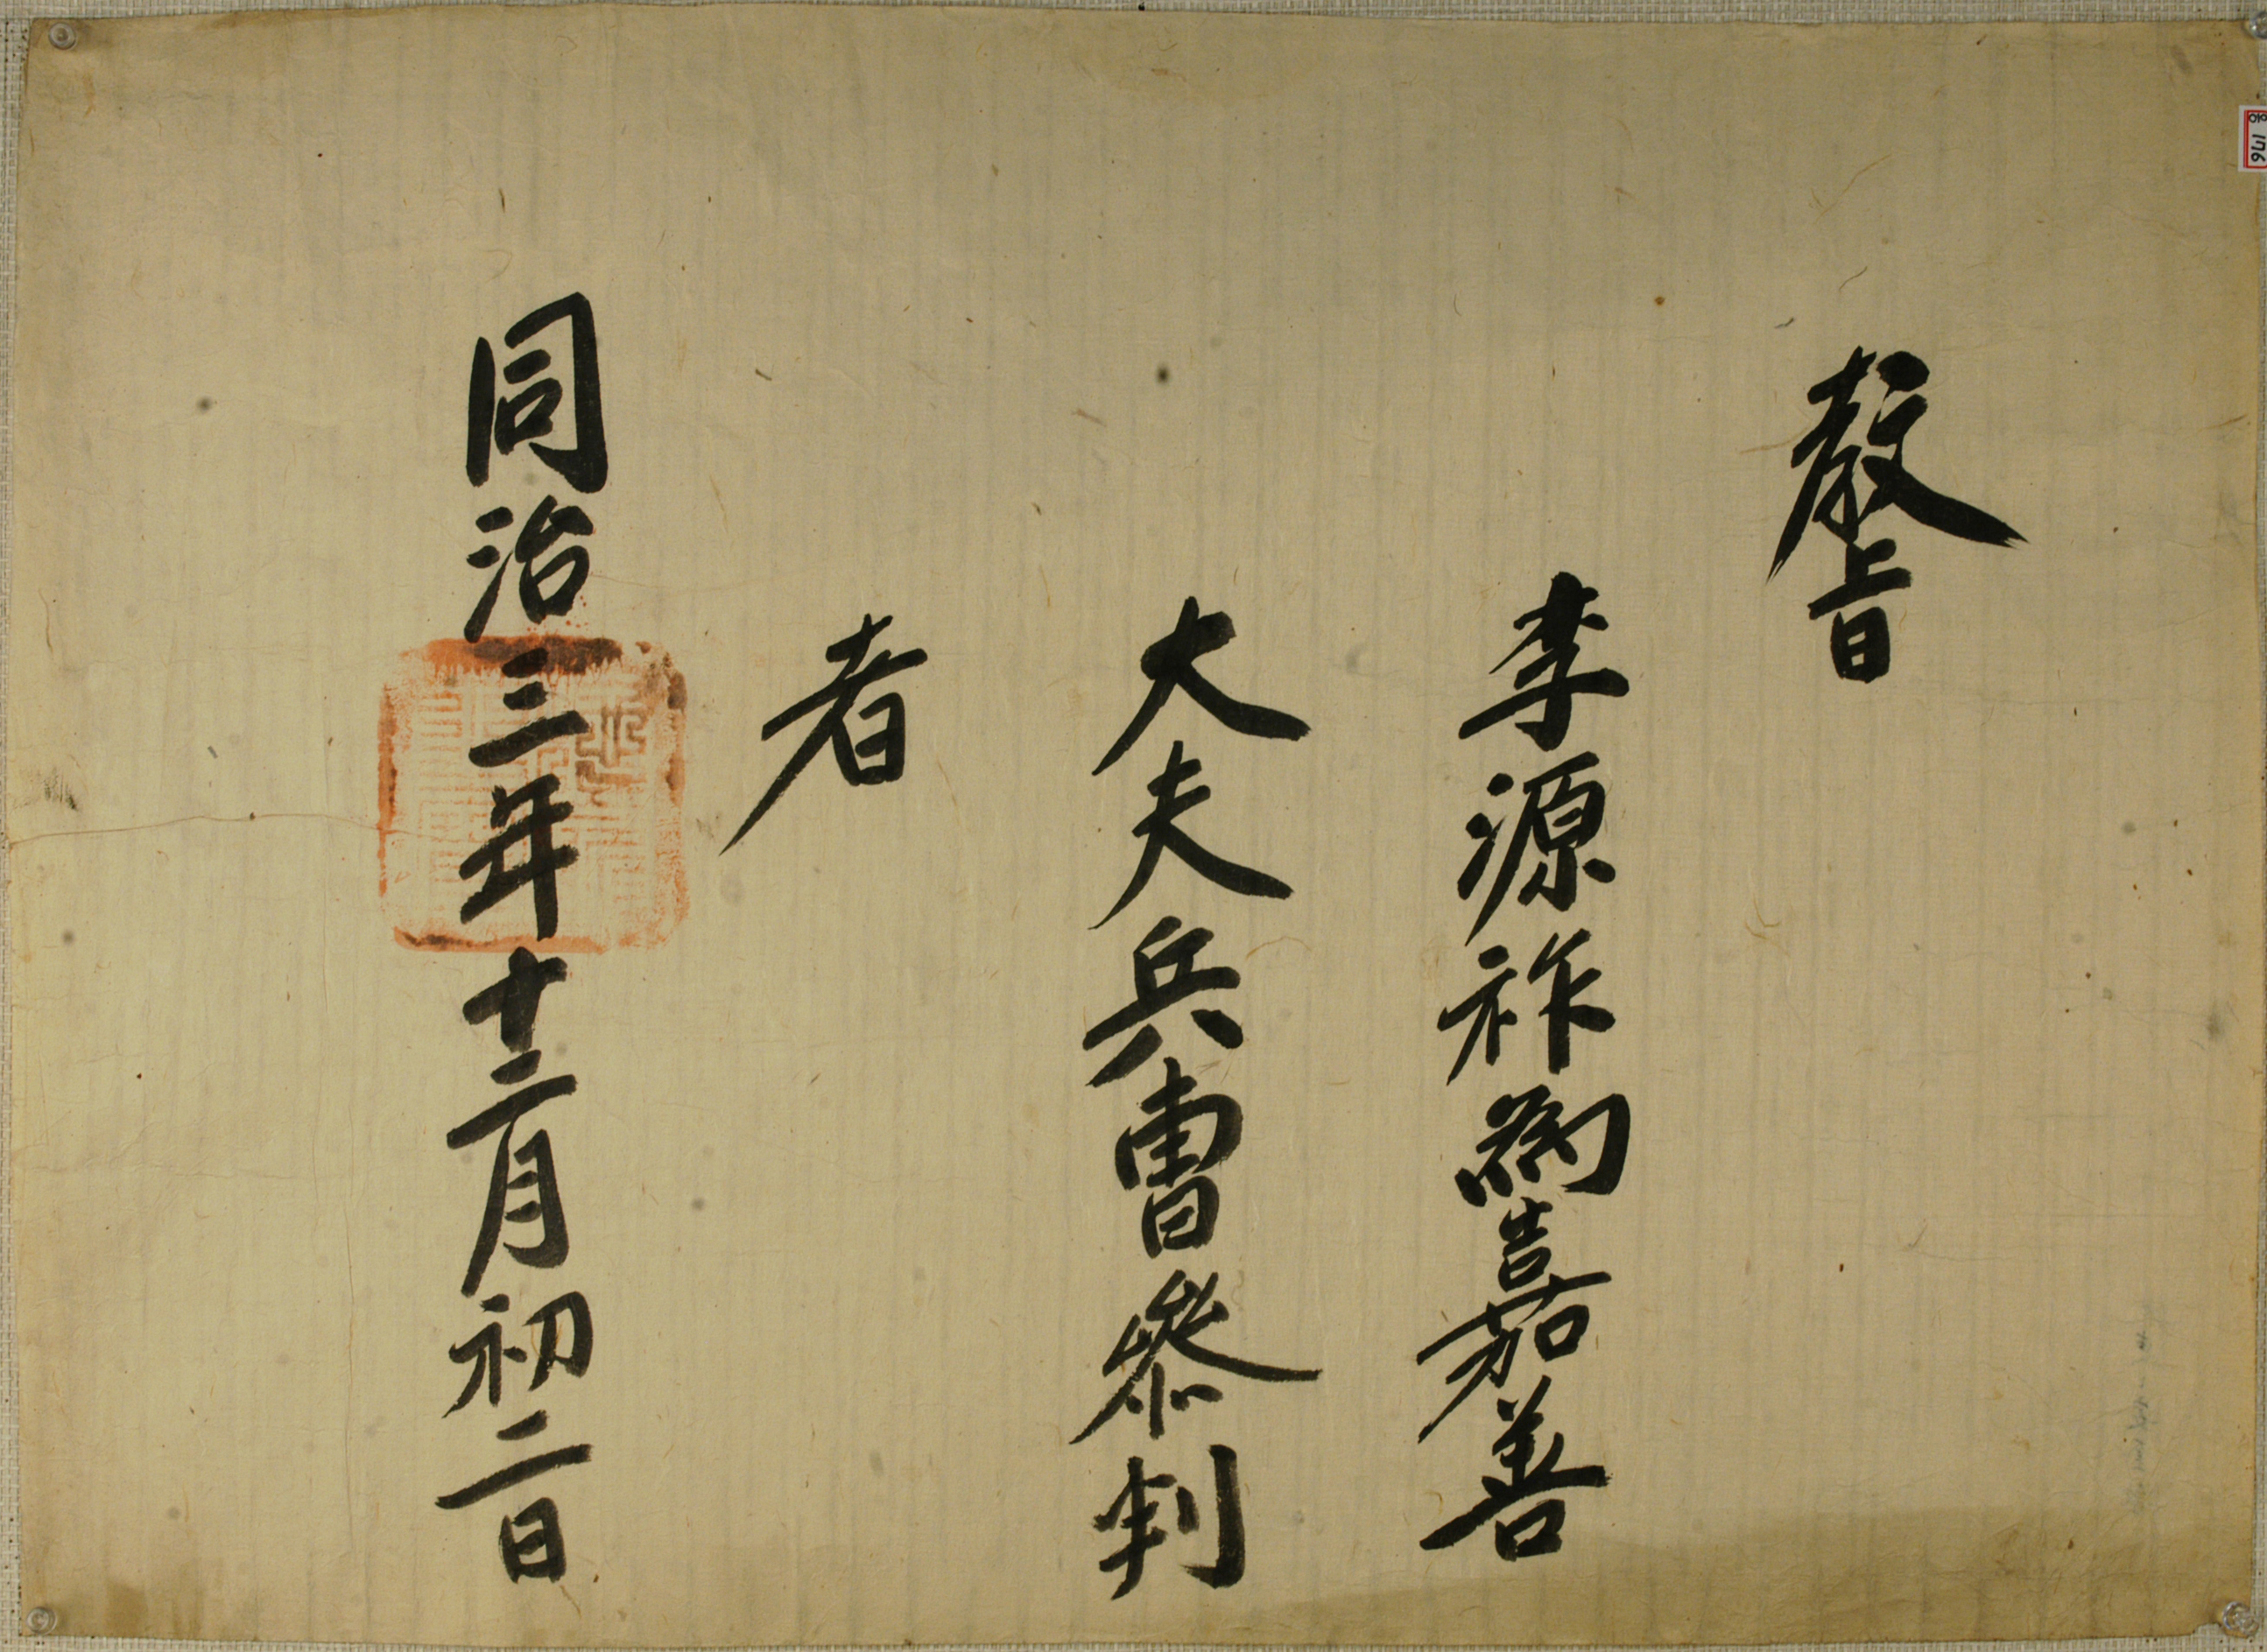 教旨
李源祚爲嘉善
大夫兵曺參判
者
同治三年十二月初二日
176